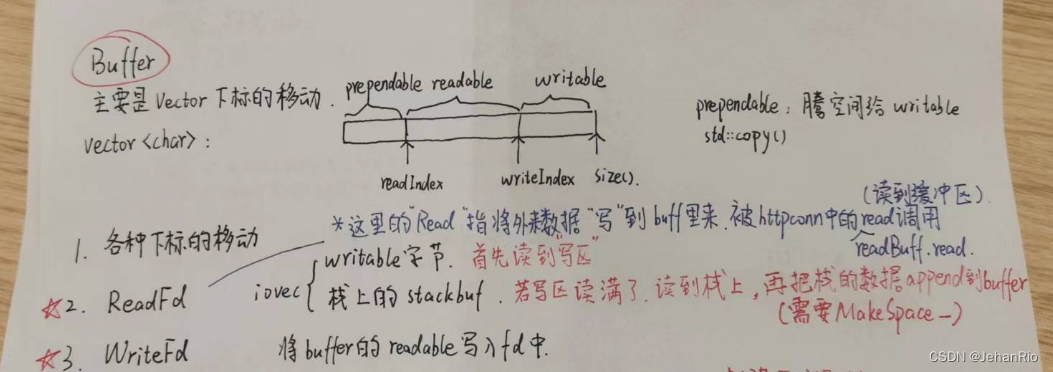 Buffer
主要是Vector下标的移动.
vector <char>:
prependable readable writable
readIndex writeIndex size().
prependable: 腾空间给writable
std::copy()
1. 各种下标的移动
*这里的"Read"指将外来数据"写"到buff里来. 被httpconn中的read调用
(读到缓冲区).
readBuff.read.
☆2. ReadFd
iovec
writable字节. 首先读到"写区"
栈上的stackbuf. 若写区读满了.读到栈上,再把栈的数据append到buffer
(需要MakeSpace_)
☆3. WriteFd 将buffer的readable写入fd中.
CSDN @JehanRio